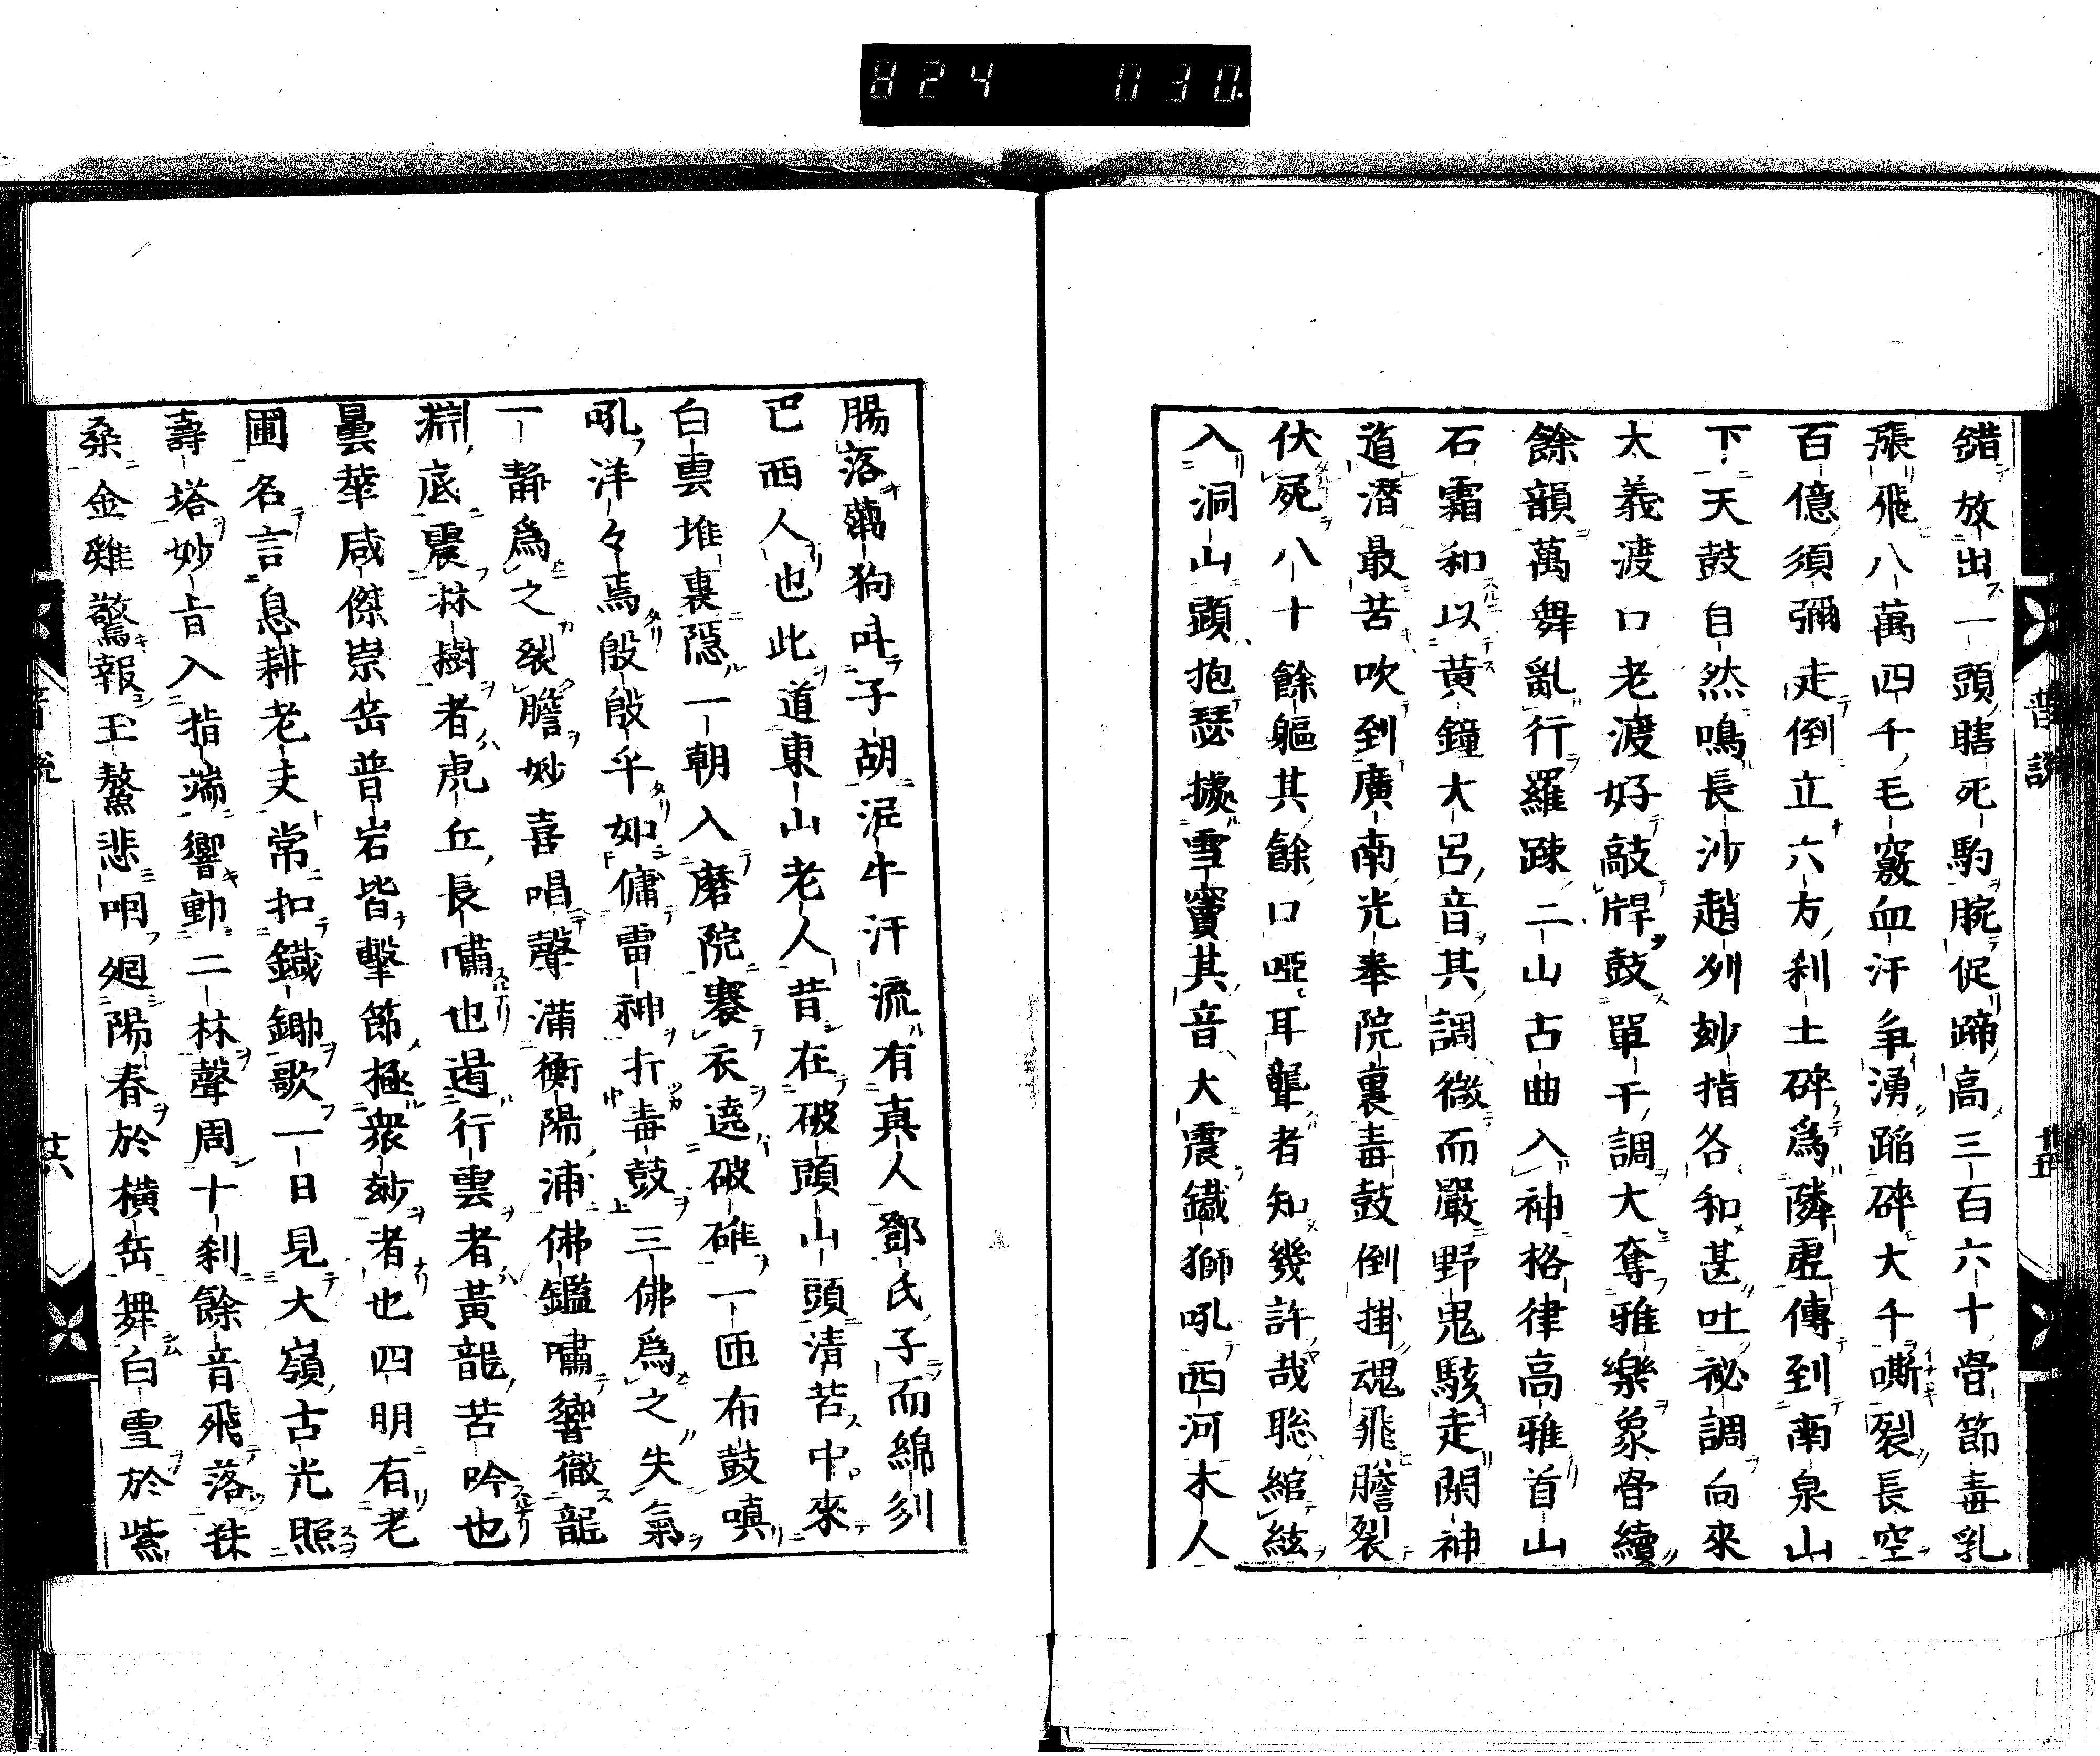 824 030
普說
錯放出一頭瞎死駒腕促蹄高三百六十骨節毒乳
張飛八萬四千毛竅血汗争湧蹈碎大千嘶裂長空
百億須彌走倒立六方刹土碎爲隣虛傳到南泉山
下天鼓自然鳴長沙趙州妙指各和甚吐祕調向來
太義渡口老渡好敲牌鼓單于調大奪雅樂象骨續
餘韻萬舞亂行羅踈二山古曲入神格律高雅首山
石霜和以黄鐘大呂音其調微而嚴野鬼駭走閑神
遁潛最苦吹到廣南光奉院裏毒鼓倒掛魂飛膽裂
伏屍八十餘軀其餘口啞耳聾者知幾許哉聡綰絃
入洞山頭抱瑟據雪竇其音大震鐵獅吼西河木人
腸落蒭狗呌子胡泥牛汗流有真人鄧氏子而綿州
巴西人也此道東山老人昔在破頭山頭清苦中來
白雲堆裏隱一朝入磨院褰衣遶破碓一匝布鼓嗔
吼洋々焉殷殷乎如傭雷神打毒鼓三佛爲之失氣
一靜爲之裂膽妙喜唱聲滿衡陽浦佛鑑嘯響徹龍
淵底震林樹者虎丘長嘯也遏行雲者黃龍苦吟也
曇華咸傑崇岳普岩皆擊節極衆妙者也四明有老
圃名言息耕老夫常扣鐵鋤歌一日見大嶺古光照
壽塔妙旨入指端響動二林聲周十刹餘音飛落扶
桑金雞驚報玉鰲悲吼廻陽春於橫岳舞白雪於紫
普說
廿六